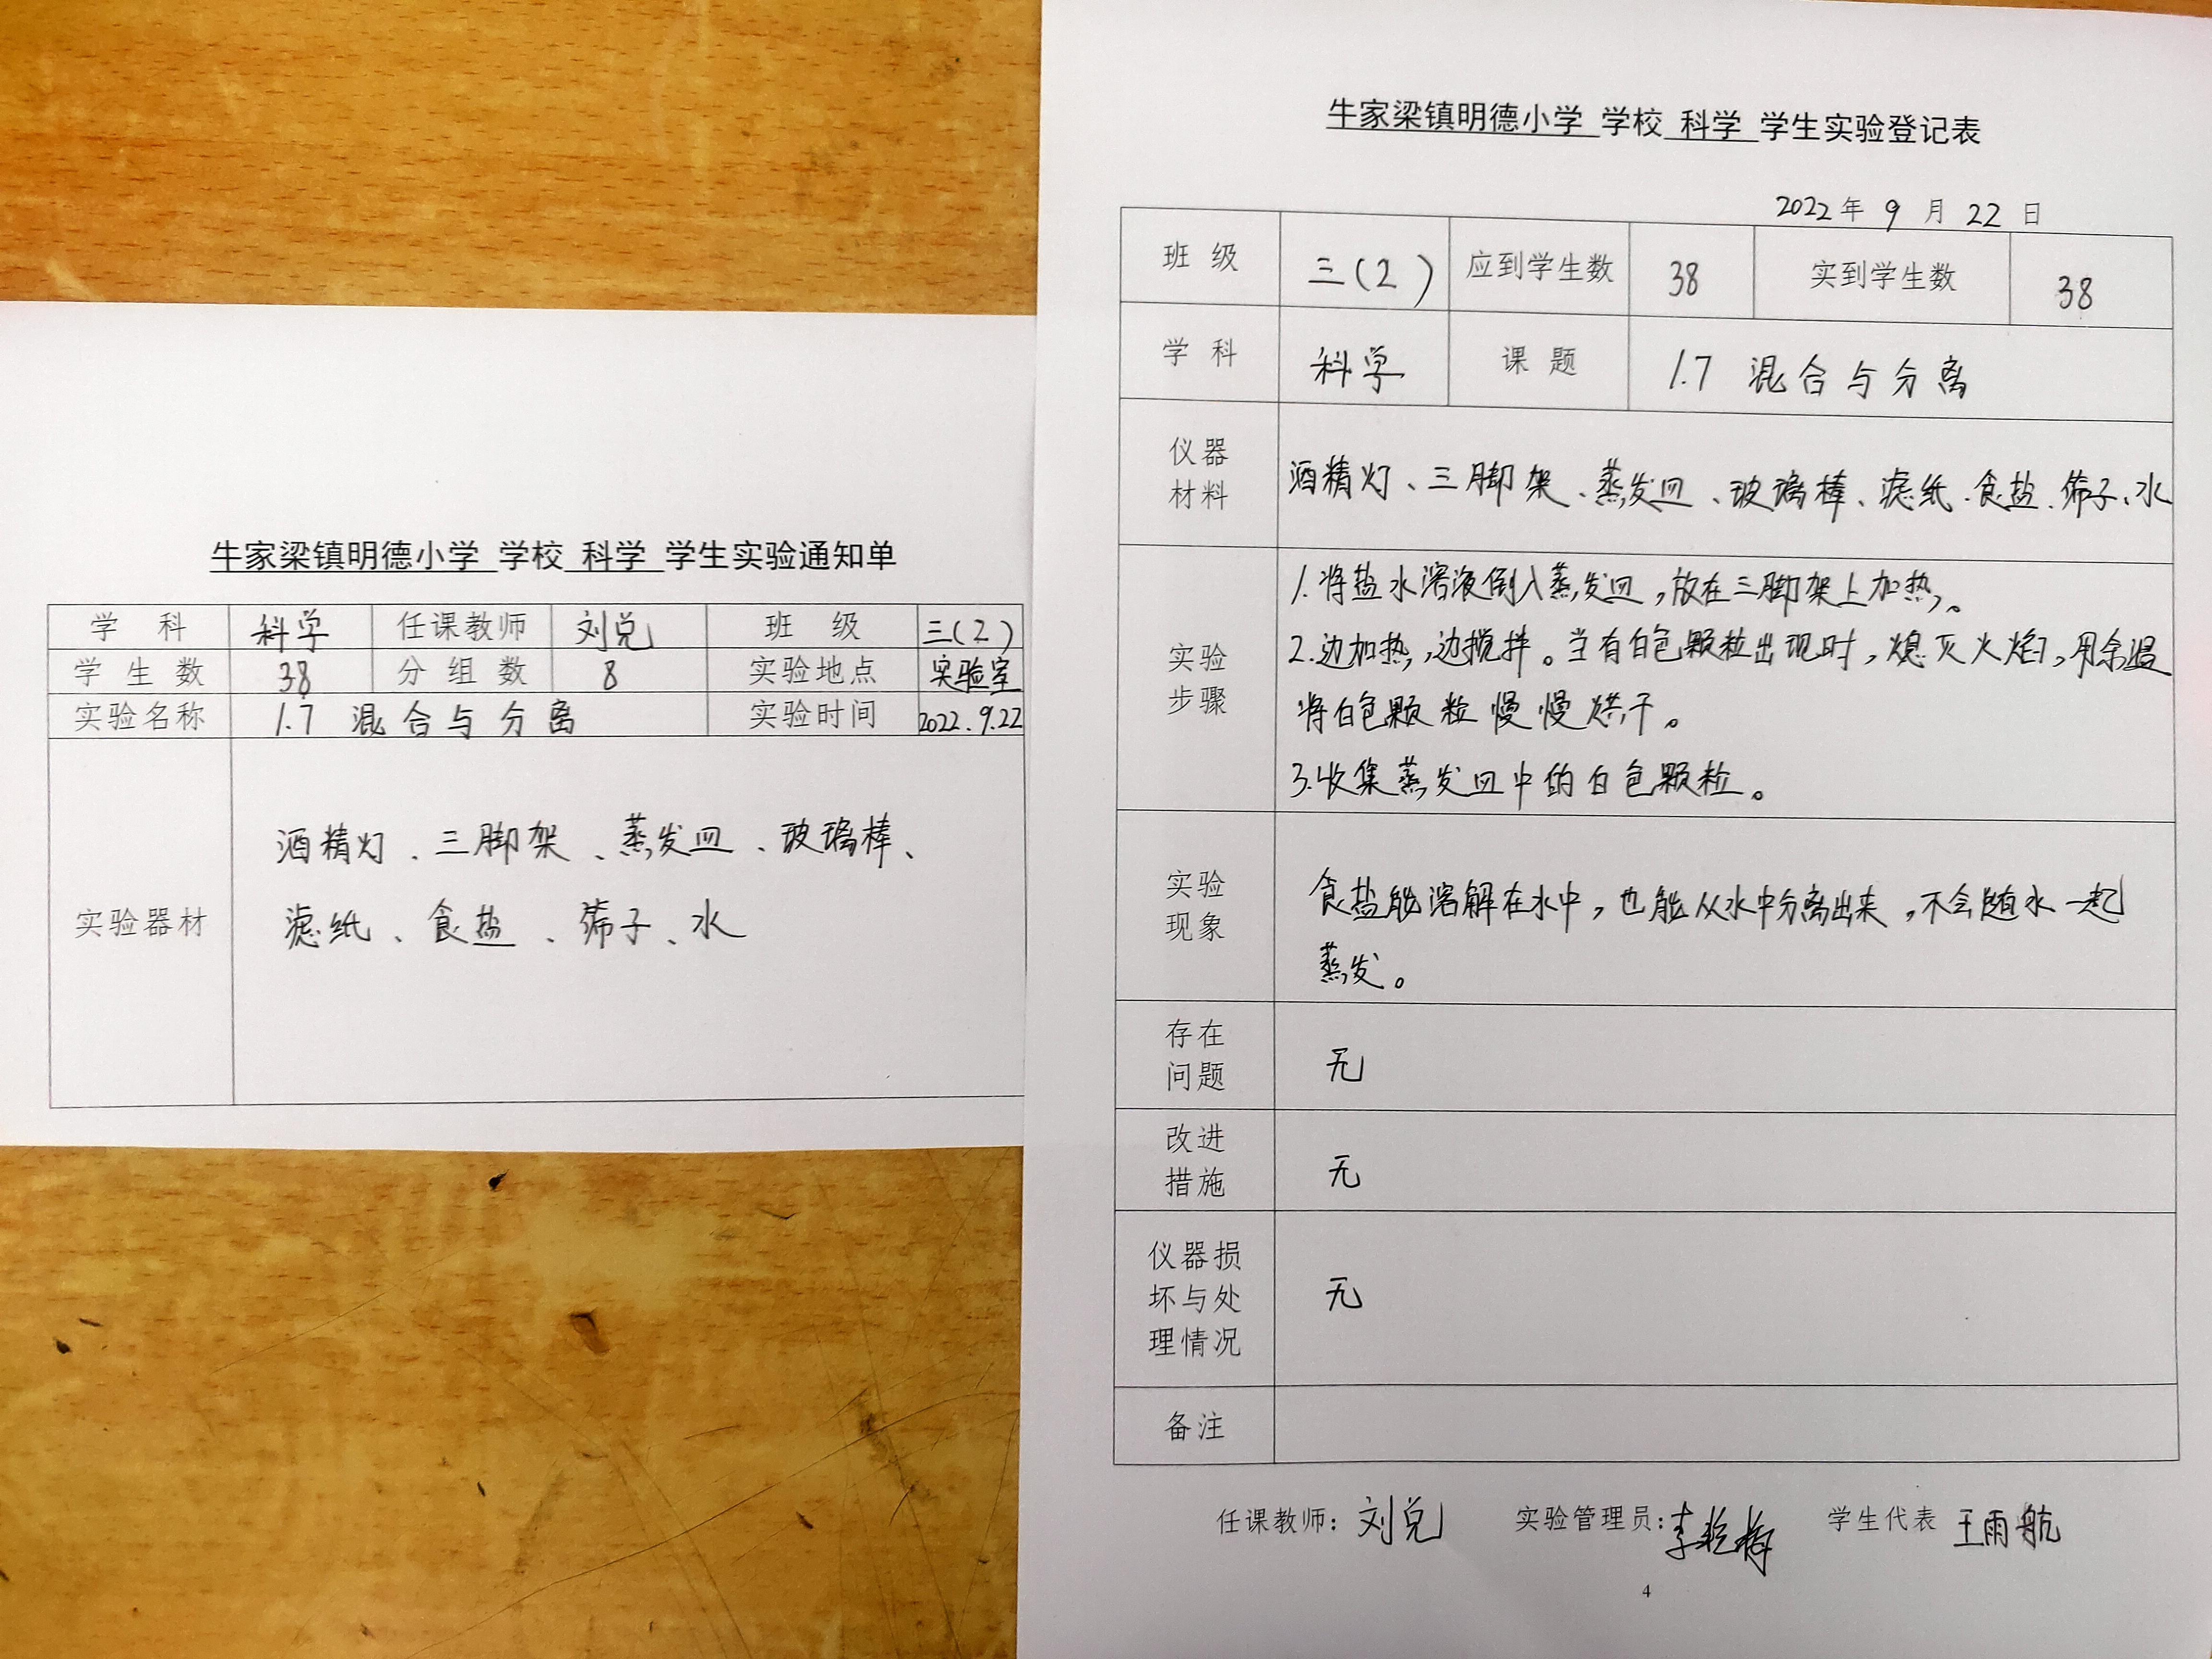 牛家梁镇明德小学 学校 科学 学生实验通知单
学 科 科学 任课教师 刘兑 班 级 三(2)
学 生 数 38 分 组 数 8 实验地点 实验室
实验名称 1.7 混合与分离 实验时间 2022.9.22
实验器材
酒精灯、三脚架、蒸发皿、玻璃棒、
滤纸、食盐、筛子、水
牛家梁镇明德小学 学校 科学 学生实验登记表
2022年 9 月 22 日
班 级 三(2) 应到学生数 38 实到学生数 38
学 科 科学 课 题 1.7 混合与分离
仪器
材料
酒精灯、三脚架、蒸发皿、玻璃棒、滤纸、食盐、筛子、水
实验
步骤
1.将盐水溶液倒入蒸发皿,放在三脚架上加热。
2.边加热,边搅拌。当有白色颗粒出现时,熄灭火焰,用余温
将白色颗粒慢慢烘干。
3.收集蒸发皿中的白色颗粒。
实验
现象
食盐能溶解在水中,也能从水中分离出来,不会随水一起
蒸发。
存在
问题
无
改进
措施
无
仪器损
坏与处
理情况
无
备注
任课教师: 刘兑 实验管理员: 学生代表 王雨航
4